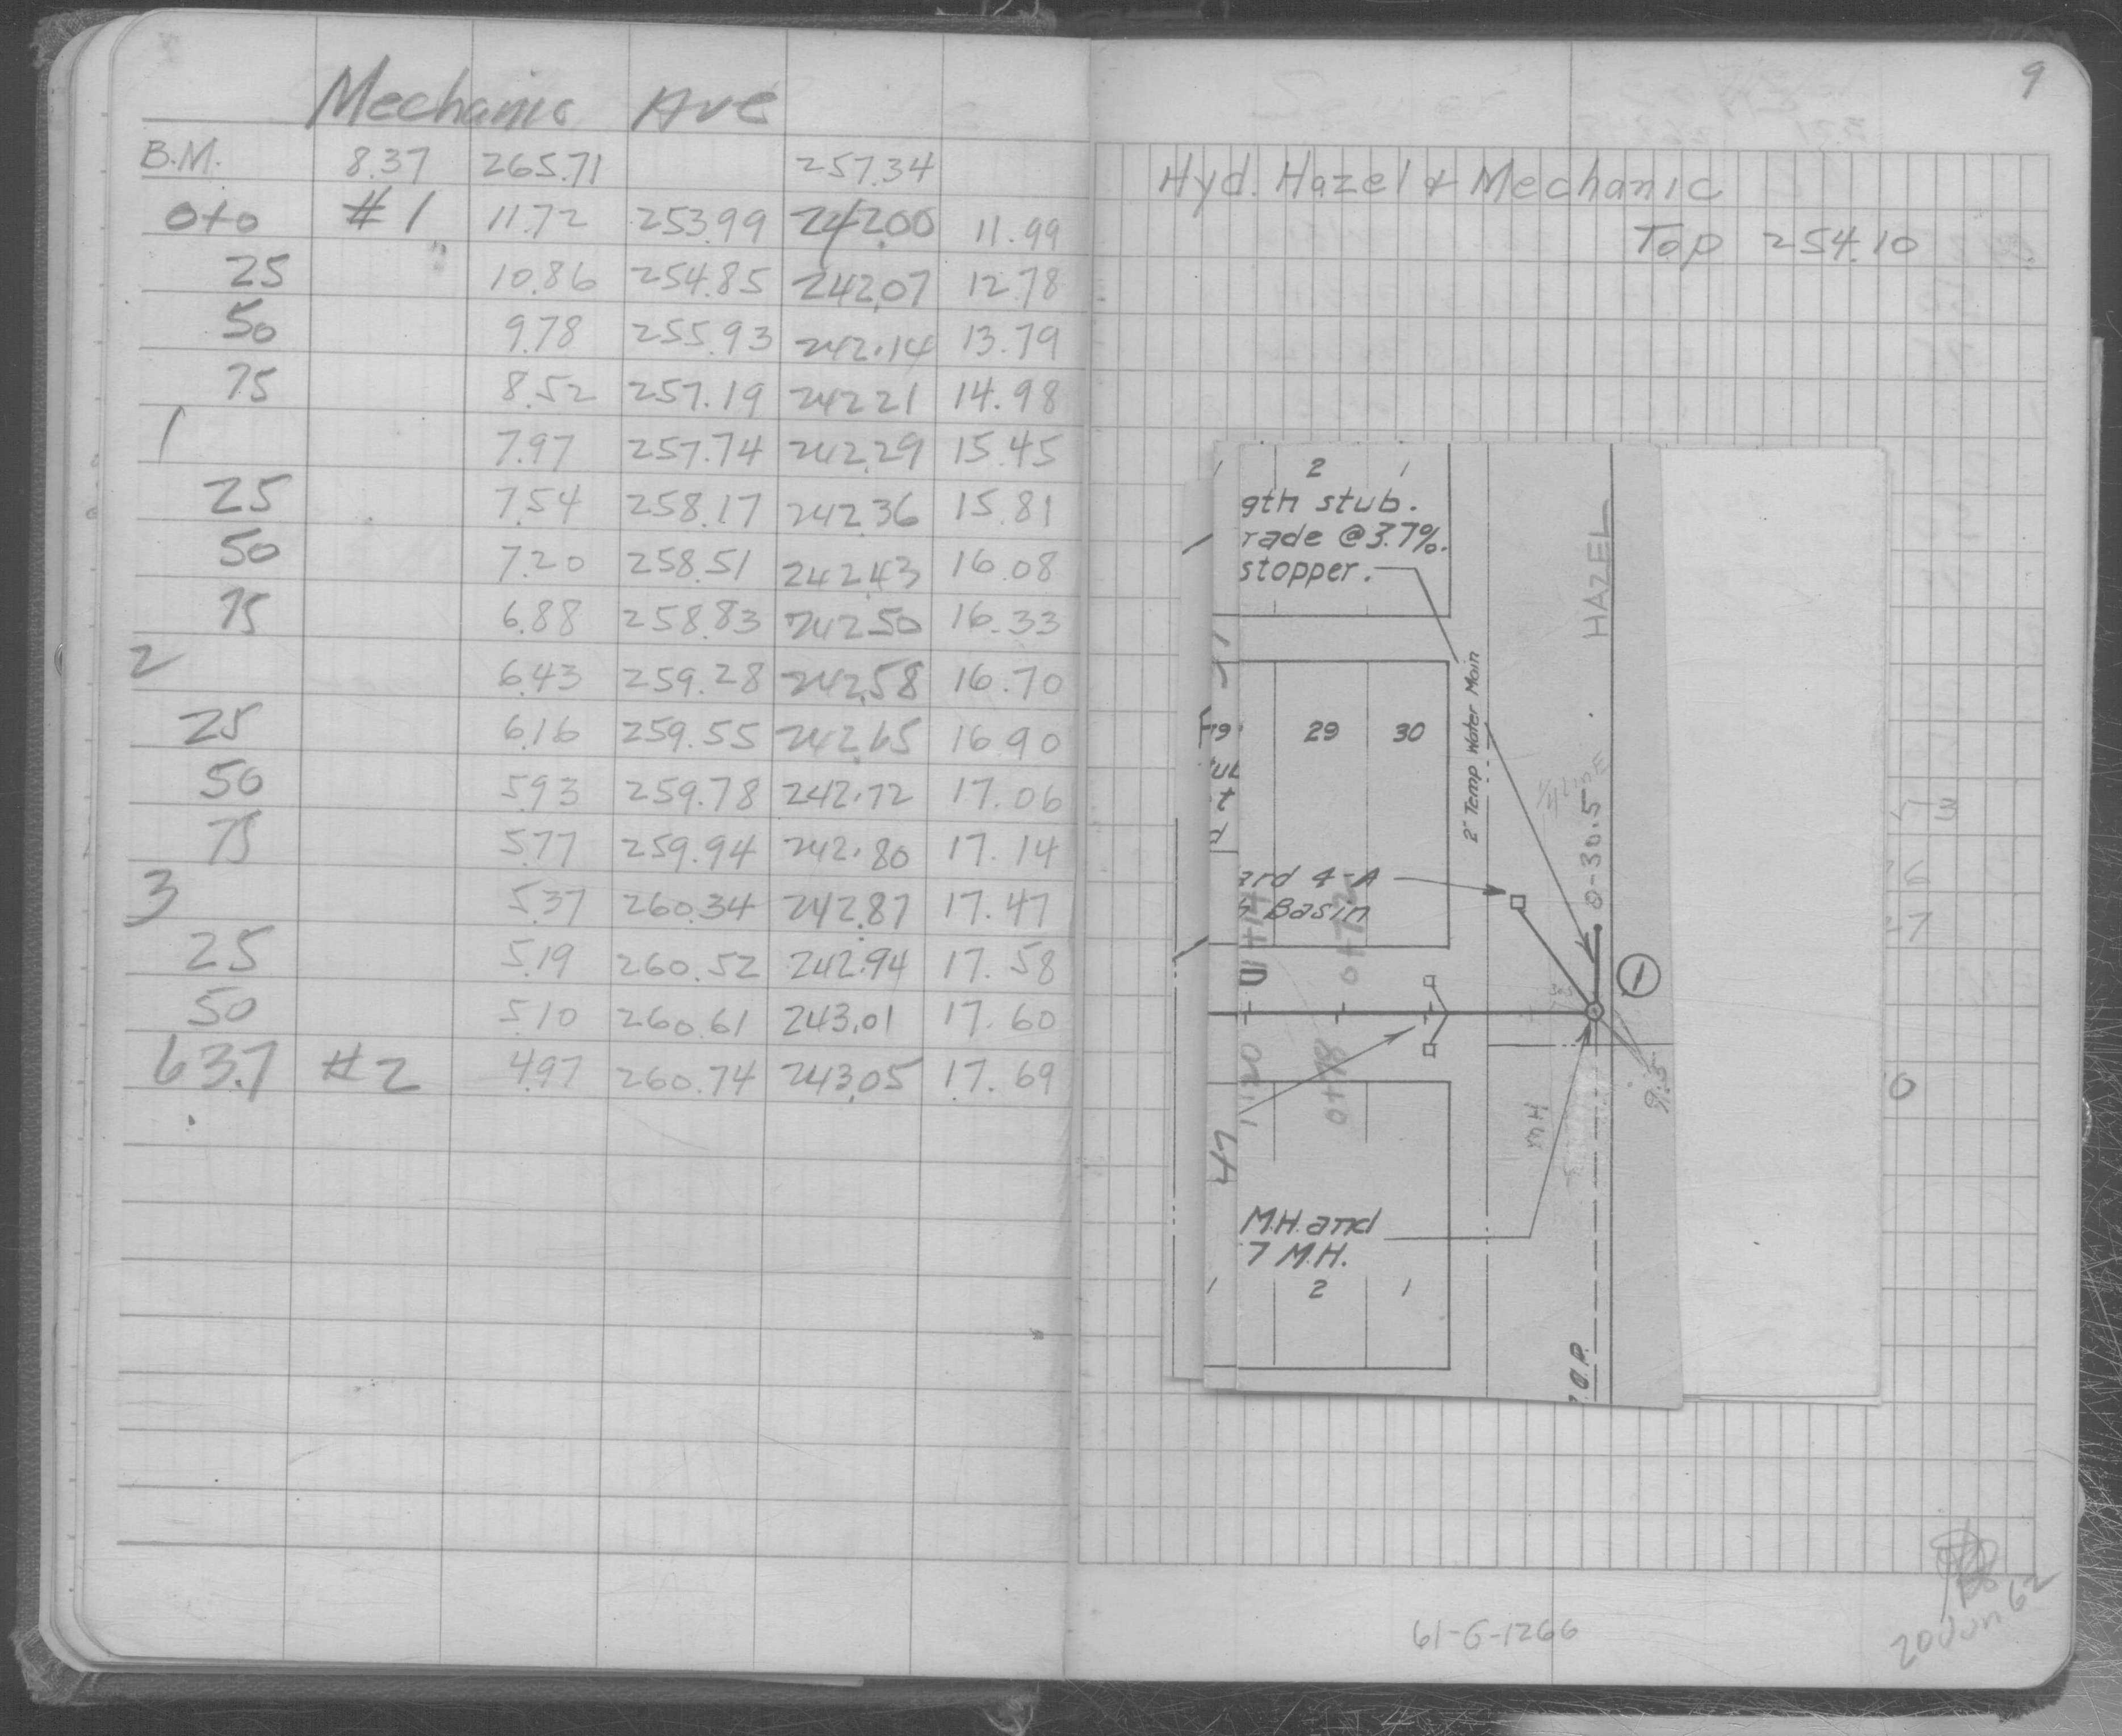 Mechanic Ave
B.M. 8.37 265.71 257.34
0+0 #1 11.72 253.99 242.00 11.99
25 10.86 254.85 242.07 12.78
50 9.78 255.93 242.14 13.79
75 8.52 257.19 242.21 14.98
1 7.97 257.74 242.29 15.45
25 7.54 258.17 242.36 15.81
50 7.20 258.51 242.43 16.08
75 6.88 258.83 242.50 16.33
2 6.43 259.28 242.58 16.70
25 6.16 259.55 242.65 16.90
50 5.93 259.78 242.72 17.06
75 5.77 259.94 242.80 17.14
3 5.37 260.34 242.87 17.47
25 5.19 260.52 242.94 17.58
50 5.10 260.61 243.01 17.60
63.7 #2 4.97 260.74 243.05 17.69
9
Hyd. Hazel & Mechanic
Top 254.10
2 1
gth stub.
rade @ 3.7%.
stopper.
HAZEL
2" Temp Water Main
29 30
0-30.5
ard 4-A
Basin
1+14
0+72
1
0+78
1+20
47
MH
9.5
M.H. and
7 M.H.
1 2 1
O.P.
53
26
27
0
61-G-1266
20 Jun 62